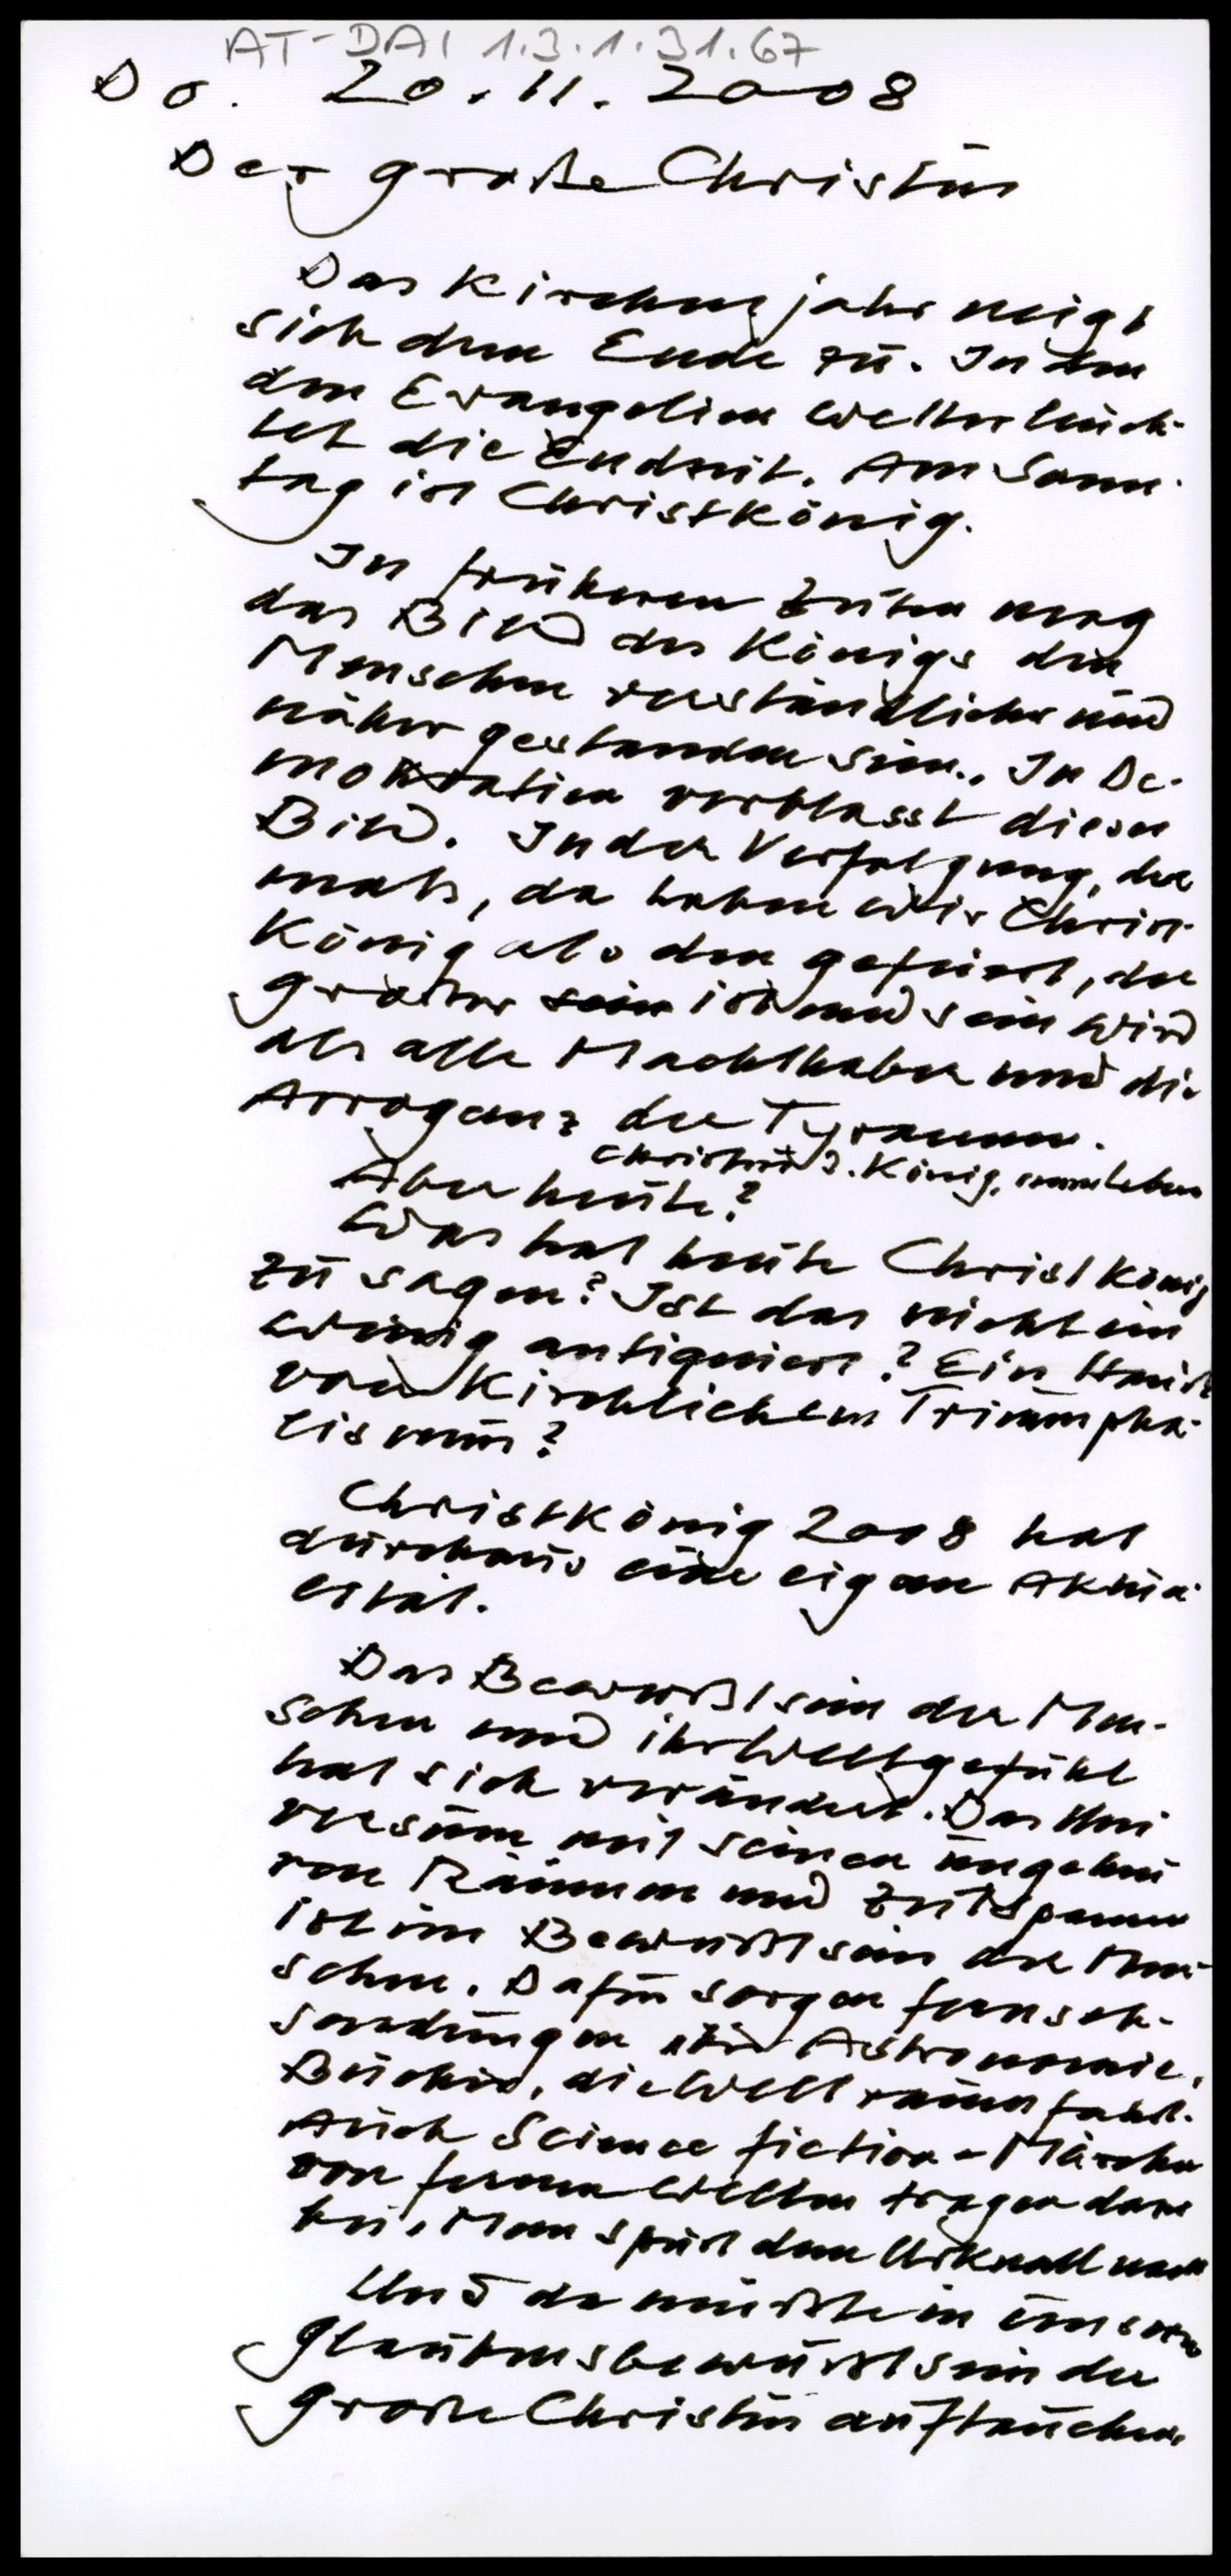 AT-DAI 1.3.1.31.67
Do. 20.11.2008
Der große Christus
Das Kirchenjahr neigt
sich dem Ende zu. In den
den Evangelien wetterleuch-
tet die Endzeit. Am Sonn-
tag ist Christkönig.
In früheren Zeiten mag
das Bild des Königs den
Menschen verständlicher und
näher gestanden sein. In De-
mokratien verblasst dieses
Bild. In der Verfolgung, da-
mals, da haben wir Christ-
König als den gefeiert, der
größer sein ist und sein wird
als alle Machthaber und die
Arroganz der Tyrannen.
Christus d. König,
Aber heute?
Was hat heute Christkönig
zu sagen? Ist das nicht ein
wenig antiquiert? Ein Hauch
von Kirchlichem Triumpha-
lismus?
Christkönig 2008 hat
durchaus eine eigene Aktua-
lität.
Das Bewußtsein der Men-
schen und ihr Weltgefühl
hat sich verändert. Das Uni
versum mit seinen ungeheu
ren Räumen und Zeitspannen
ist im Bewußtsein der Men-
schen. Dafür sorgen Fernseh-
sendungen über Astronomie,
Bücher, die Weltraumfahrt.
Auch Science fiction-Märchen
von fernen Welten tragen dazu
bei. Man spürt dem Urknall nach
Und da müßte in unserem
Glaubensbewußtsein der
große Christus auftauchen.